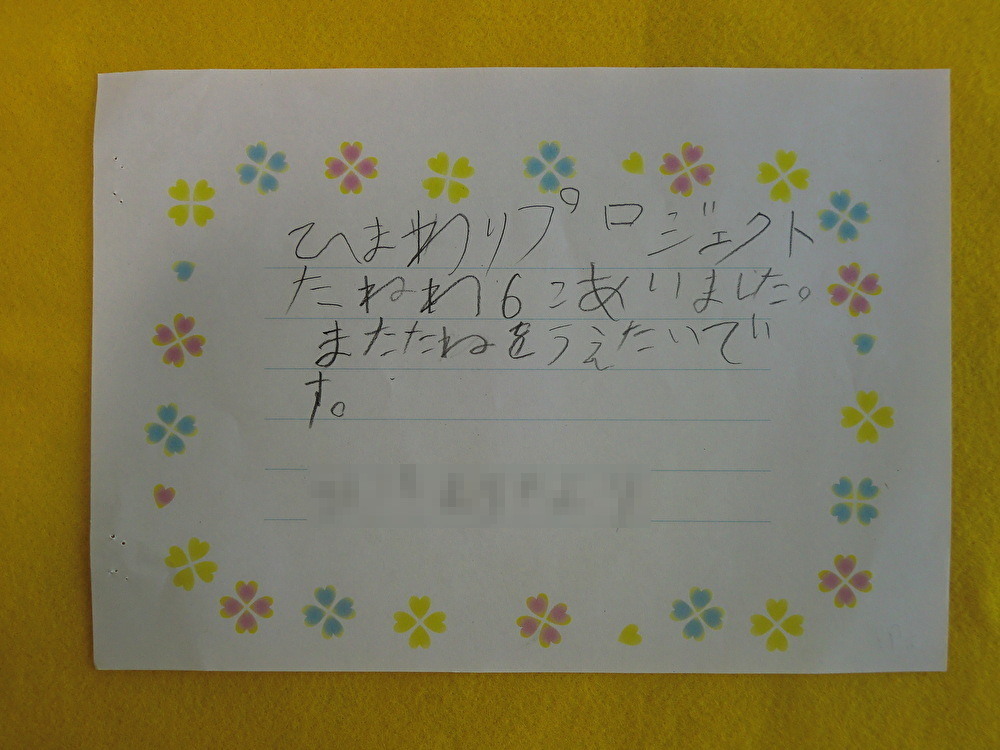 ひまわりプロジェクト
たねわ6こあいました。
またたねをうえたいで
す。